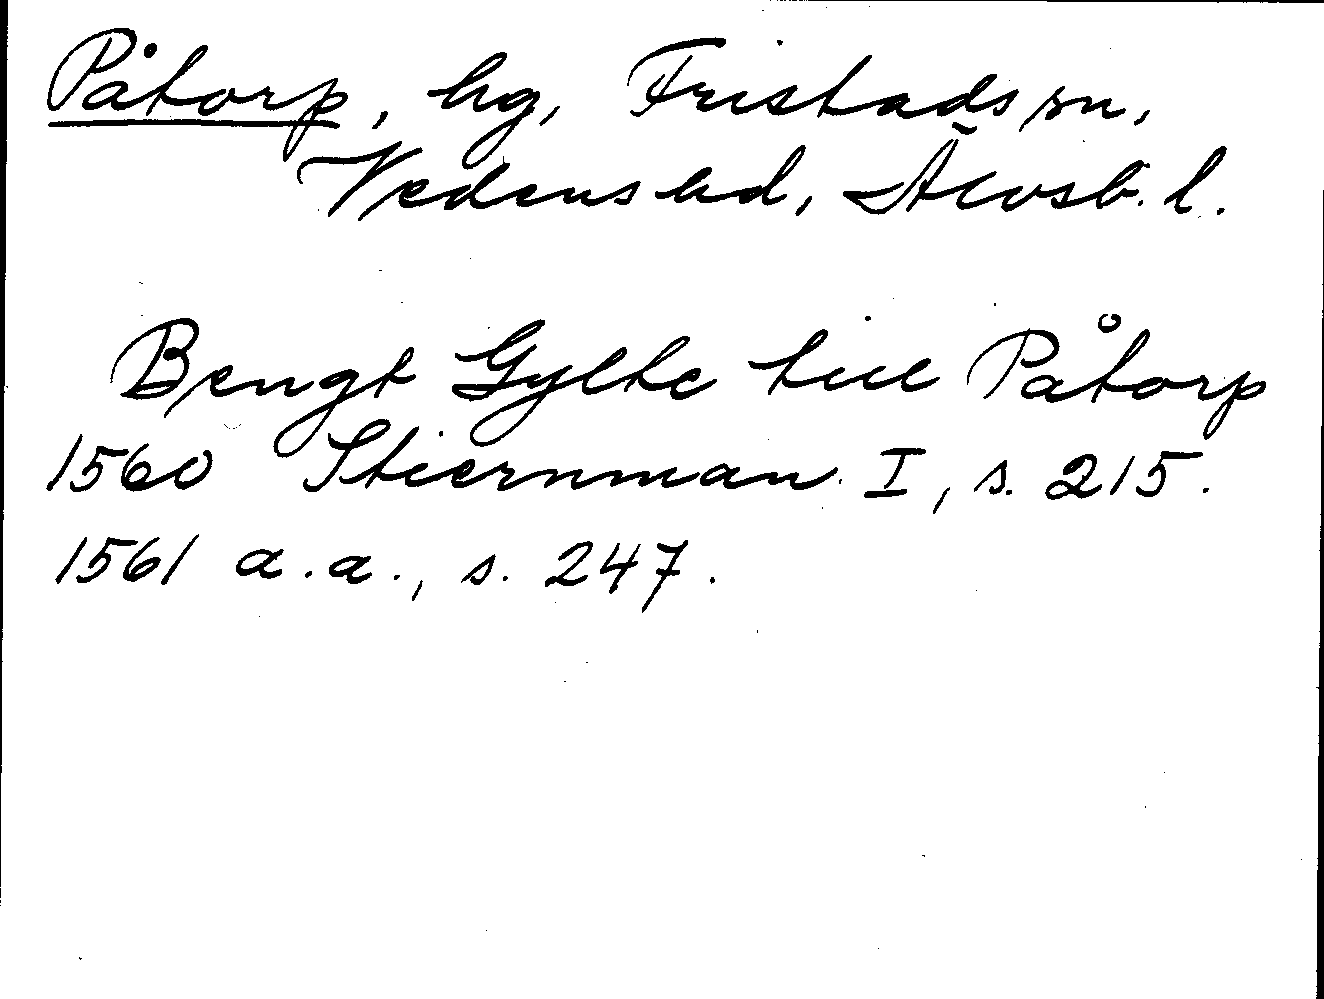 Påtorp, hg, Fristads sn,
Vedens hd, Älvsb. l.
Bengt Gylte till Påtorp
1560 Stiernman I, s. 215.
1561 a.a., s. 247.